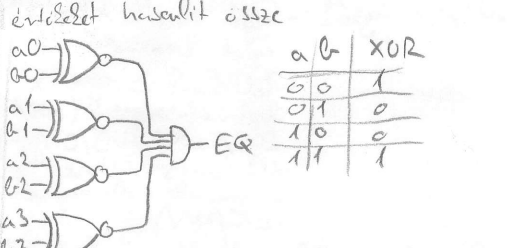 értékeket hasonlít össze
a0
b0
a1
b1
a2
b2
a3
EQ
a b XOR
0 0 1
0 1 0
1 0 0
1 1 1